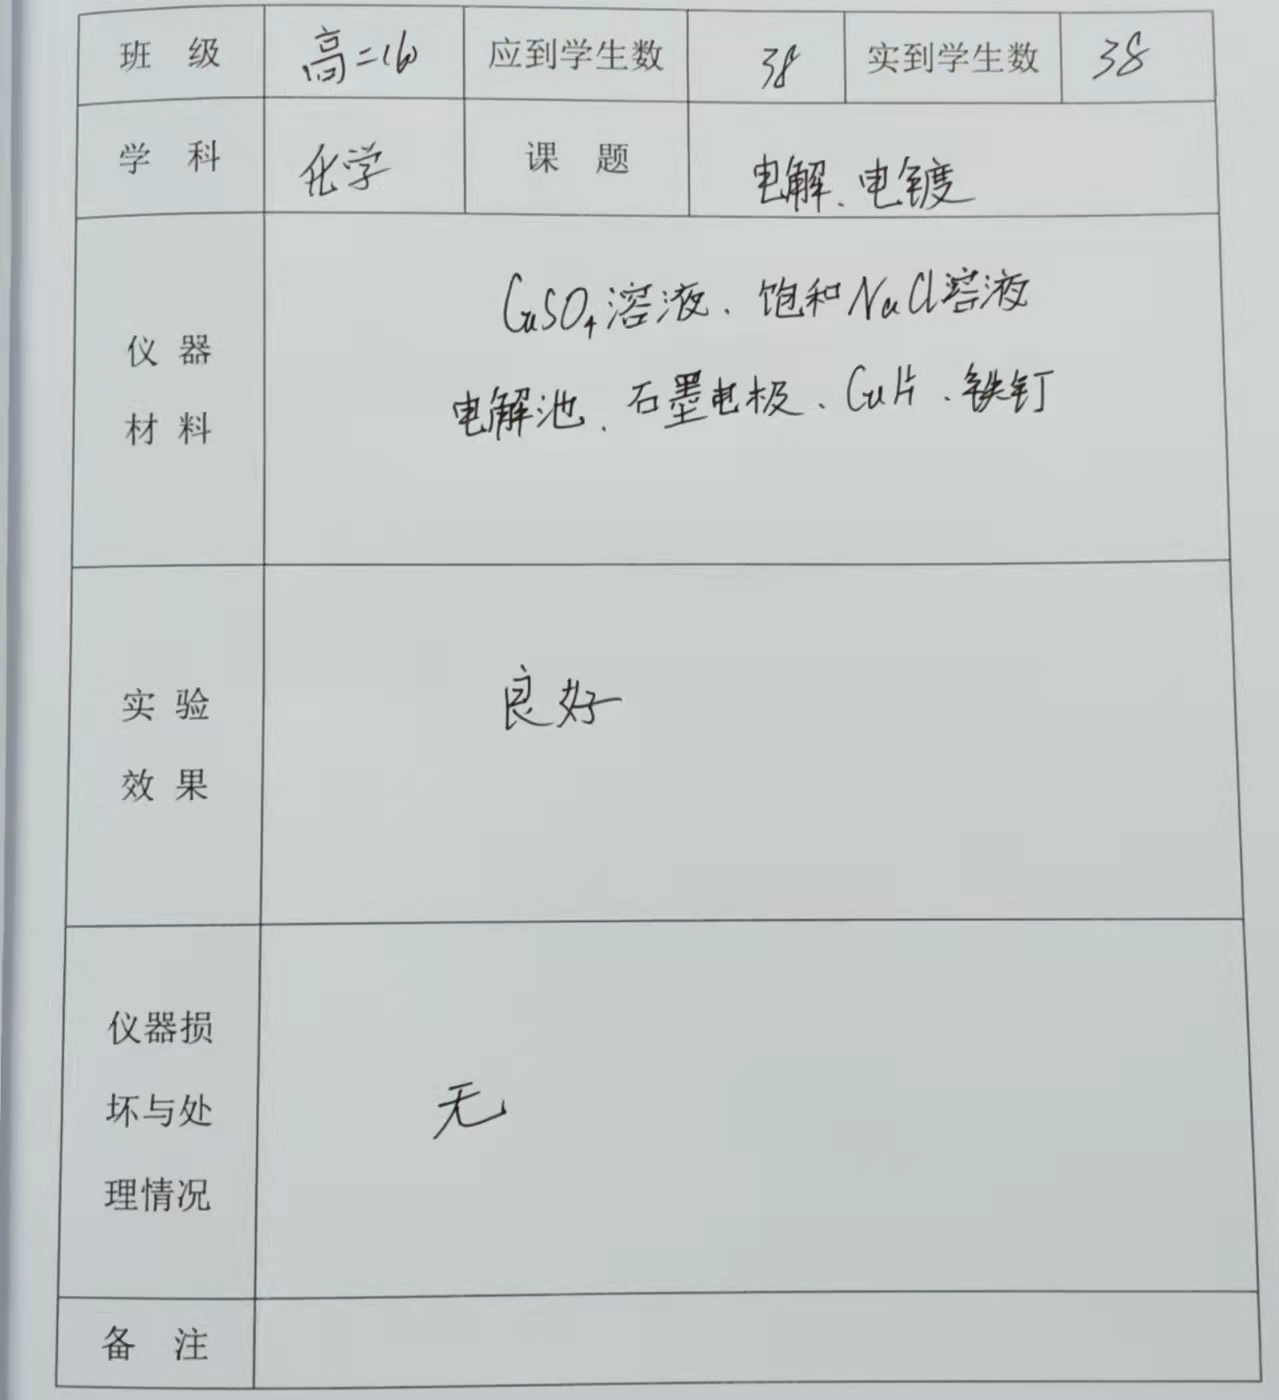 班 级 高二16 应到学生数 38 实到学生数 38
学 科 化学 课 题 电解、电镀
CuSO4溶液、饱和NaCl溶液
仪 器
电解池、石墨电极、Cu片、铁钉
材 料
实 验 良好
效 果
仪器损
坏与处 无
理情况
备 注